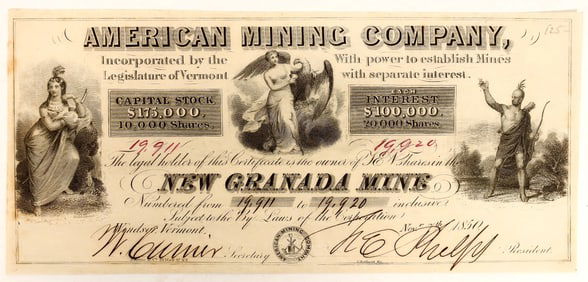 125-
AMERICAN MINING COMPANY,
Incorporated by the Legislature of Vermont
With power to establish Mines with separate interest.
CAPITAL STOCK.
$175,000.
10,000 Shares.
EACH
INTEREST
$100,000.
20,000 Shares.
19,911 19,920
The legal holder of this Certificate is the owner of shares in the
NEW GRANADA MINE
Numbered from 19,911 to 19,920 inclusive
Subject to the By Laws of the Corporation
Windsor, Vermont, 1850
W. Currier Secretary AMERICAN MINING COMPANY Phelps President.